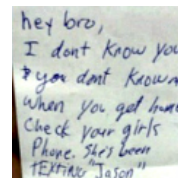 hey bro,
I dont know you
& you dont know m
when you get home
Check your girls
Phone. She's been
tExting "Jason"